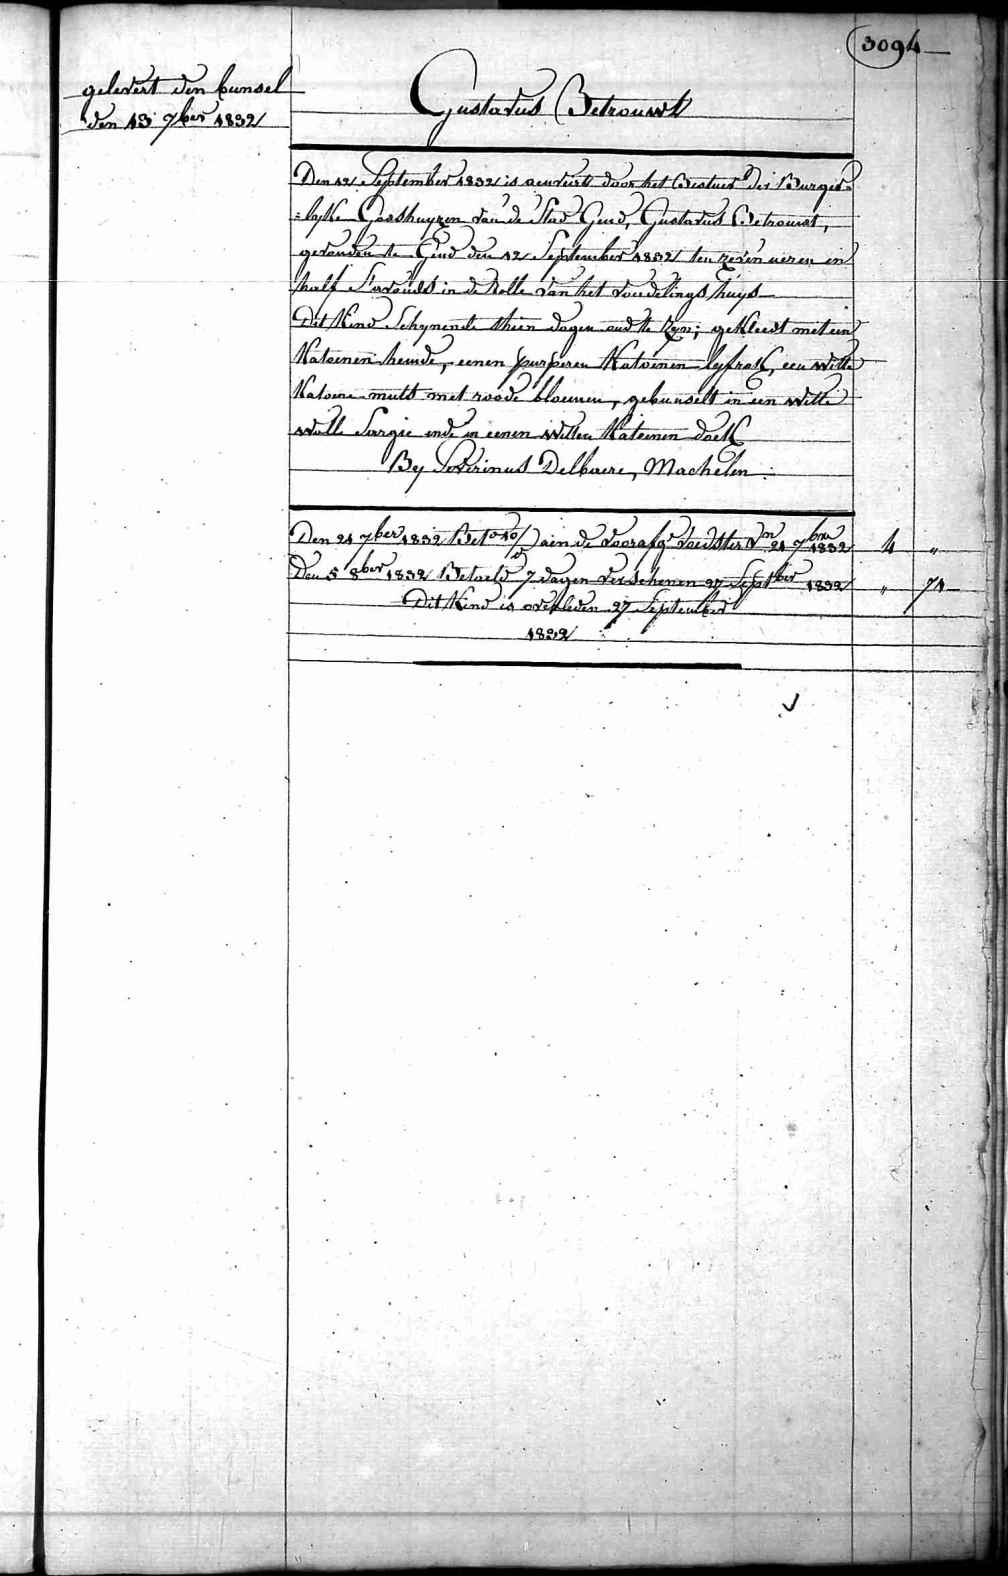 3094
gelevert den bunsel
den 13 7ber 1832
Gustavus Betrouwt
Den 12 September 1832 is aenveirt door het Bestuer der Burger=
=lyke Godshuyzen van de Stad Gend, Gustavus Betrouwt,
gevonden te Gend den 12 September 1832 ten zeven ueren en
half s'avonds in de Rolle van het vondelings huys
Dit Kind Schynende thien dagen oud te zyn; gekleed met een
Katoenen hemde, eenen purperen Katoenen lyfrok, een witte
Katoene muts met roode bloemen, gebunselt in een witte
wolle Sargie ende in eenen witten Katoenen doek
By Severinus Delbaere, Machelen.
Den 21 7ber 1832 Bet aen de voorafg voedster 21 7bre 1832 4 "
Den 5 8ber 1832 Betaeld 7 dagen verschenen 27 Septber 1832 " 71
Dit Kind is overleden 27 September
1832